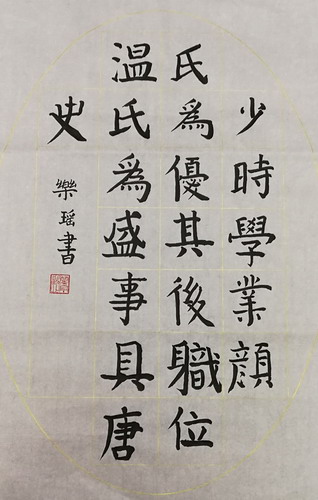 少時學業顏
氏為優其後職位
溫氏為盛事具唐
史
樂瑶書